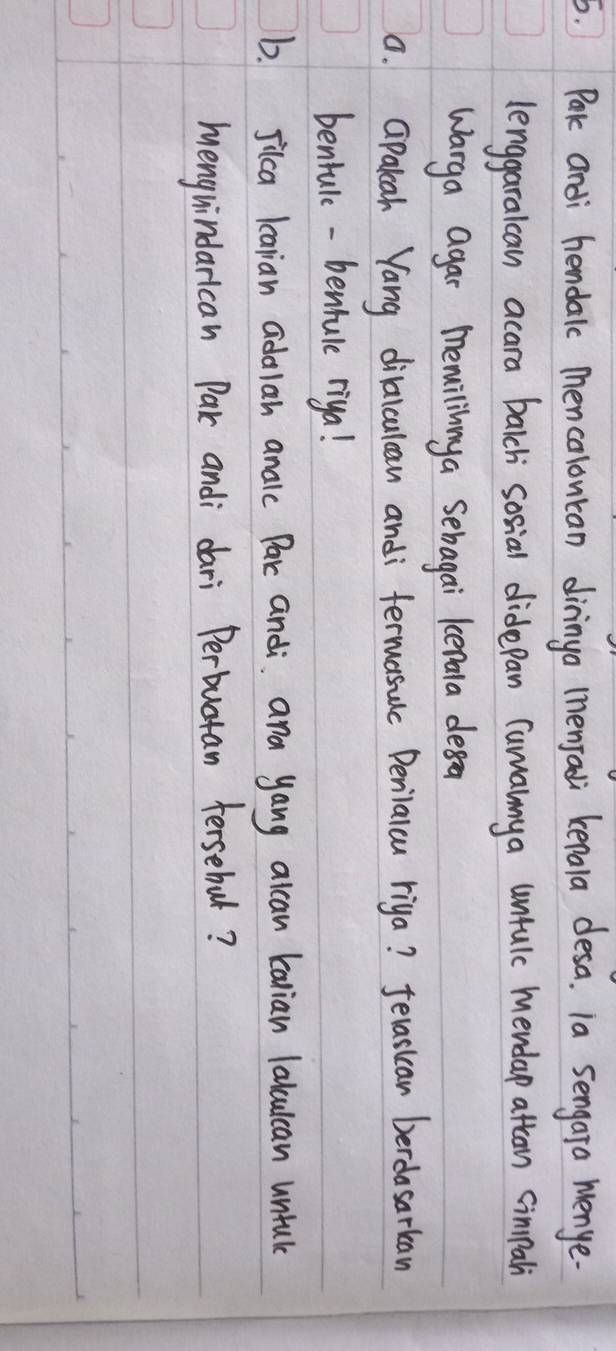 5. Pak andi hendak mencalonkan dirinya menjadi kepala desa. ia sengaja menye-
lenggarakan acara bakti sosial didepan rumahnya untuk mendapatkan simpati
warga agar memilihnya sebagai kepala desa
a. apakah yang dilakukan andi termasuk perilaku riya? jelaskan berdasarkan
bentuk - bentuk riya!
b. jika kalian adalah anak Pak andi. apa yang akan kalian lakukan untuk
menghindarkan Pak andi dari Perbuatan tersebut?